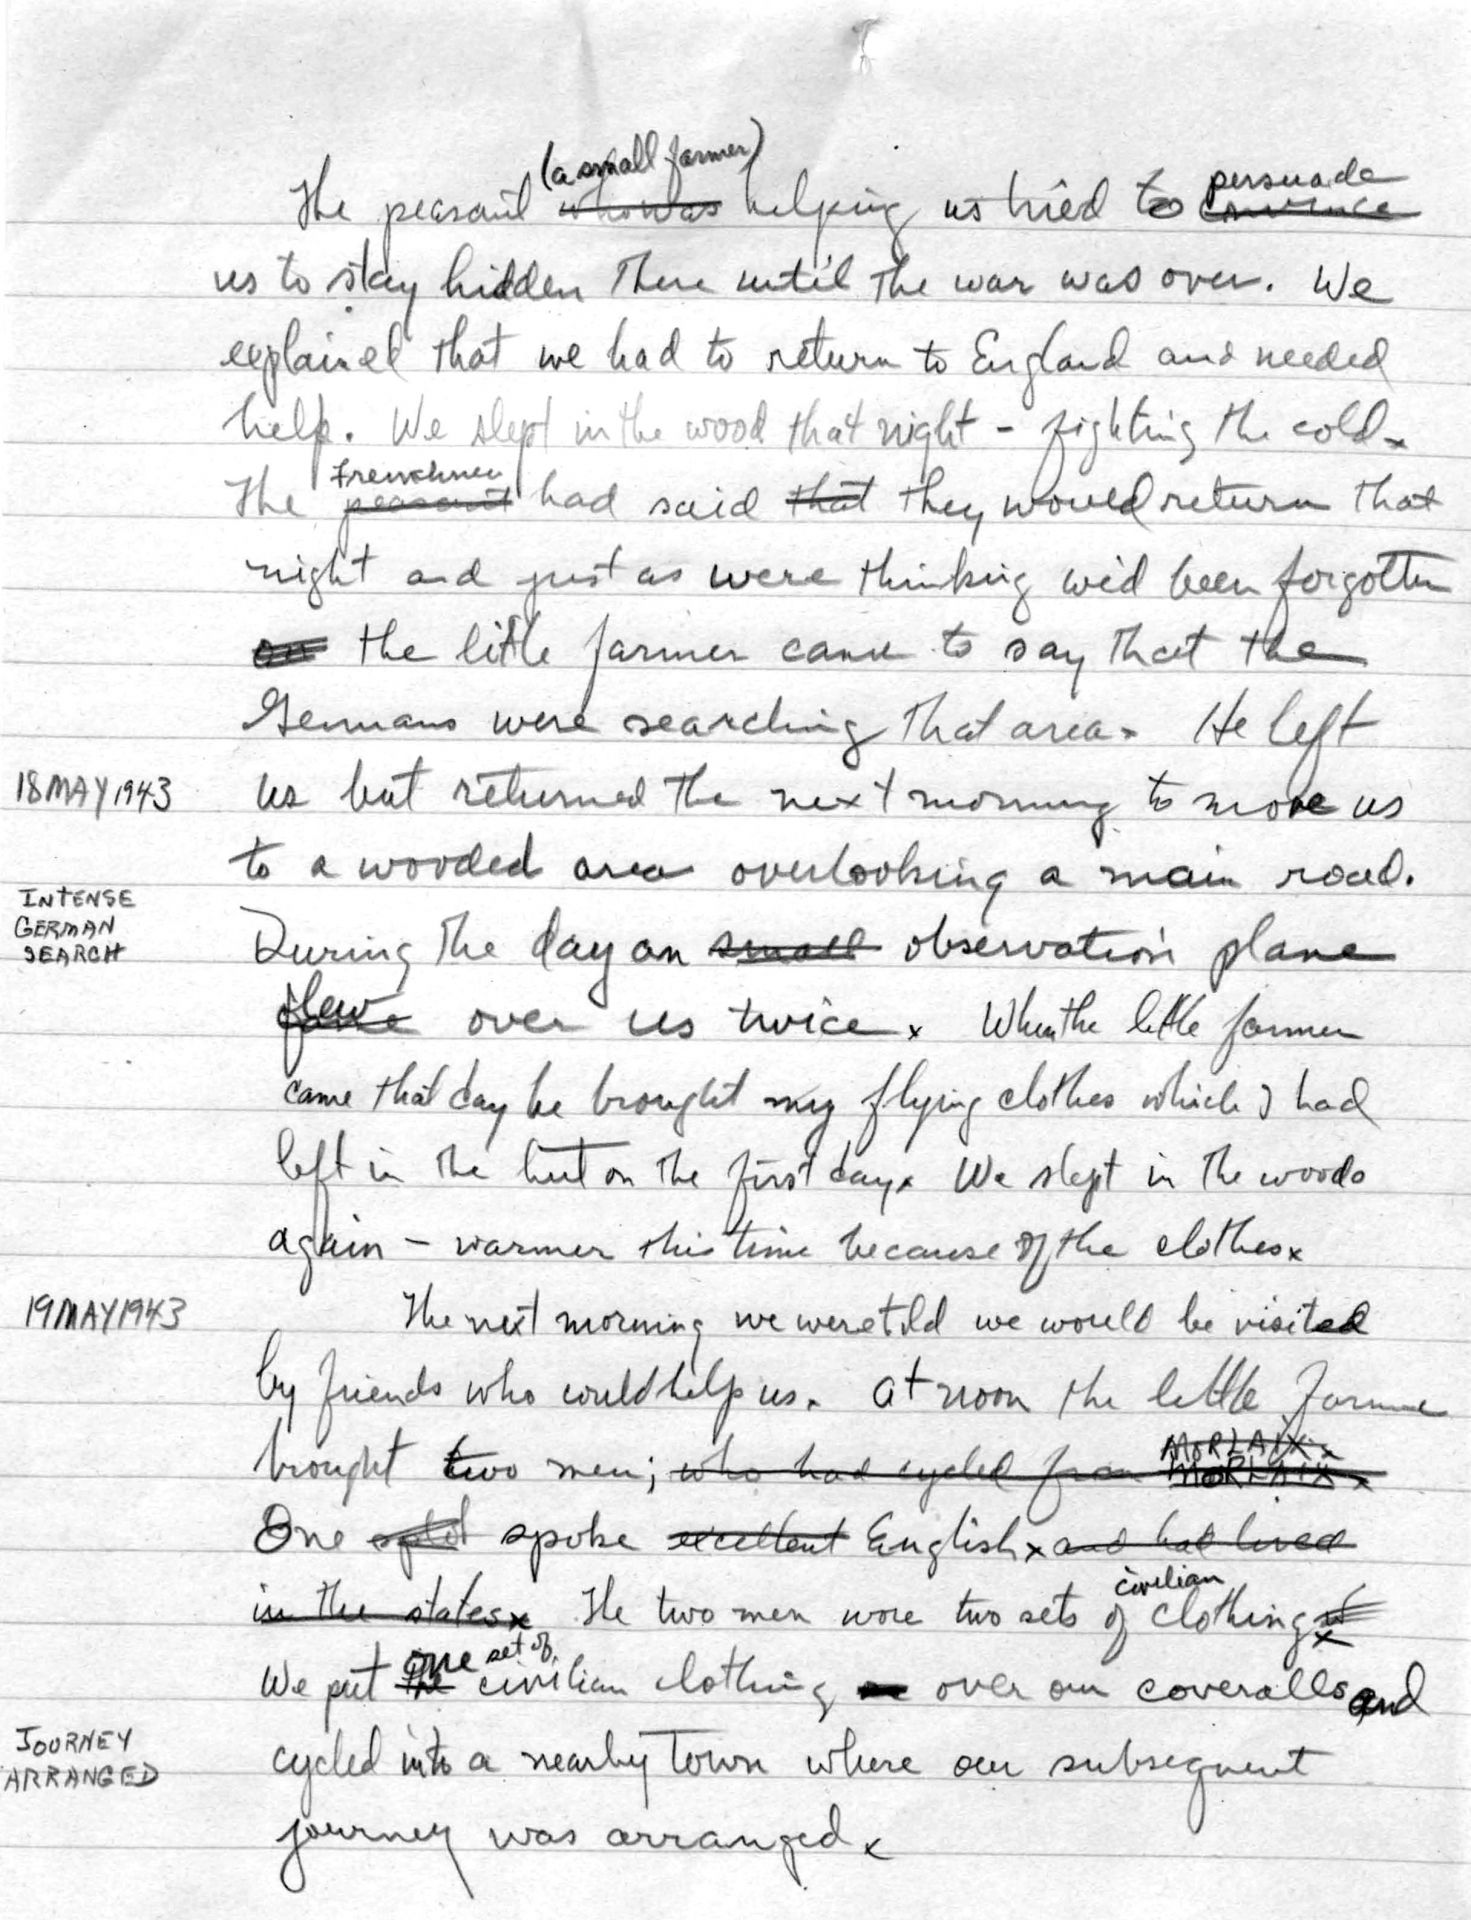 (a small farmer)
The peasant who was helping us tried to persuade convince
us to stay hidden there until the war was over. We
explained that we had to return to England and needed
help. We slept in the wood that night - fighting the cold.
Frenchmen
The peasant had said that they would return that
night and just as were thinking we'd been forgotten
the little farmer came to say that the
Germans were searching that area. He left
18 MAY 1943 us but returned the next morning to move us
to a wooded area overlooking a main road.
INTENSE
GERMAN
SEARCH
During the day an small observation plane
flew over us twice x When the little farmer
came that day he brought my flying clothes which I had
left in the hut on the first day x We slept in the woods
again - warmer this time because of the clothes x
19 MAY 1943 The next morning we were told we would be visited
by friends who could help us. At noon the little farmer
MORLAIX x
brought two men; who had cycled from MORLAIX x
One spoke excellent English x and had lived
civilian
in the states x The two men wore two sets of clothing x
one set of
We put the civilian clothing over our coveralls and
JOURNEY
ARRANGED
cycled into a nearby town where our subsequent
journey was arranged x